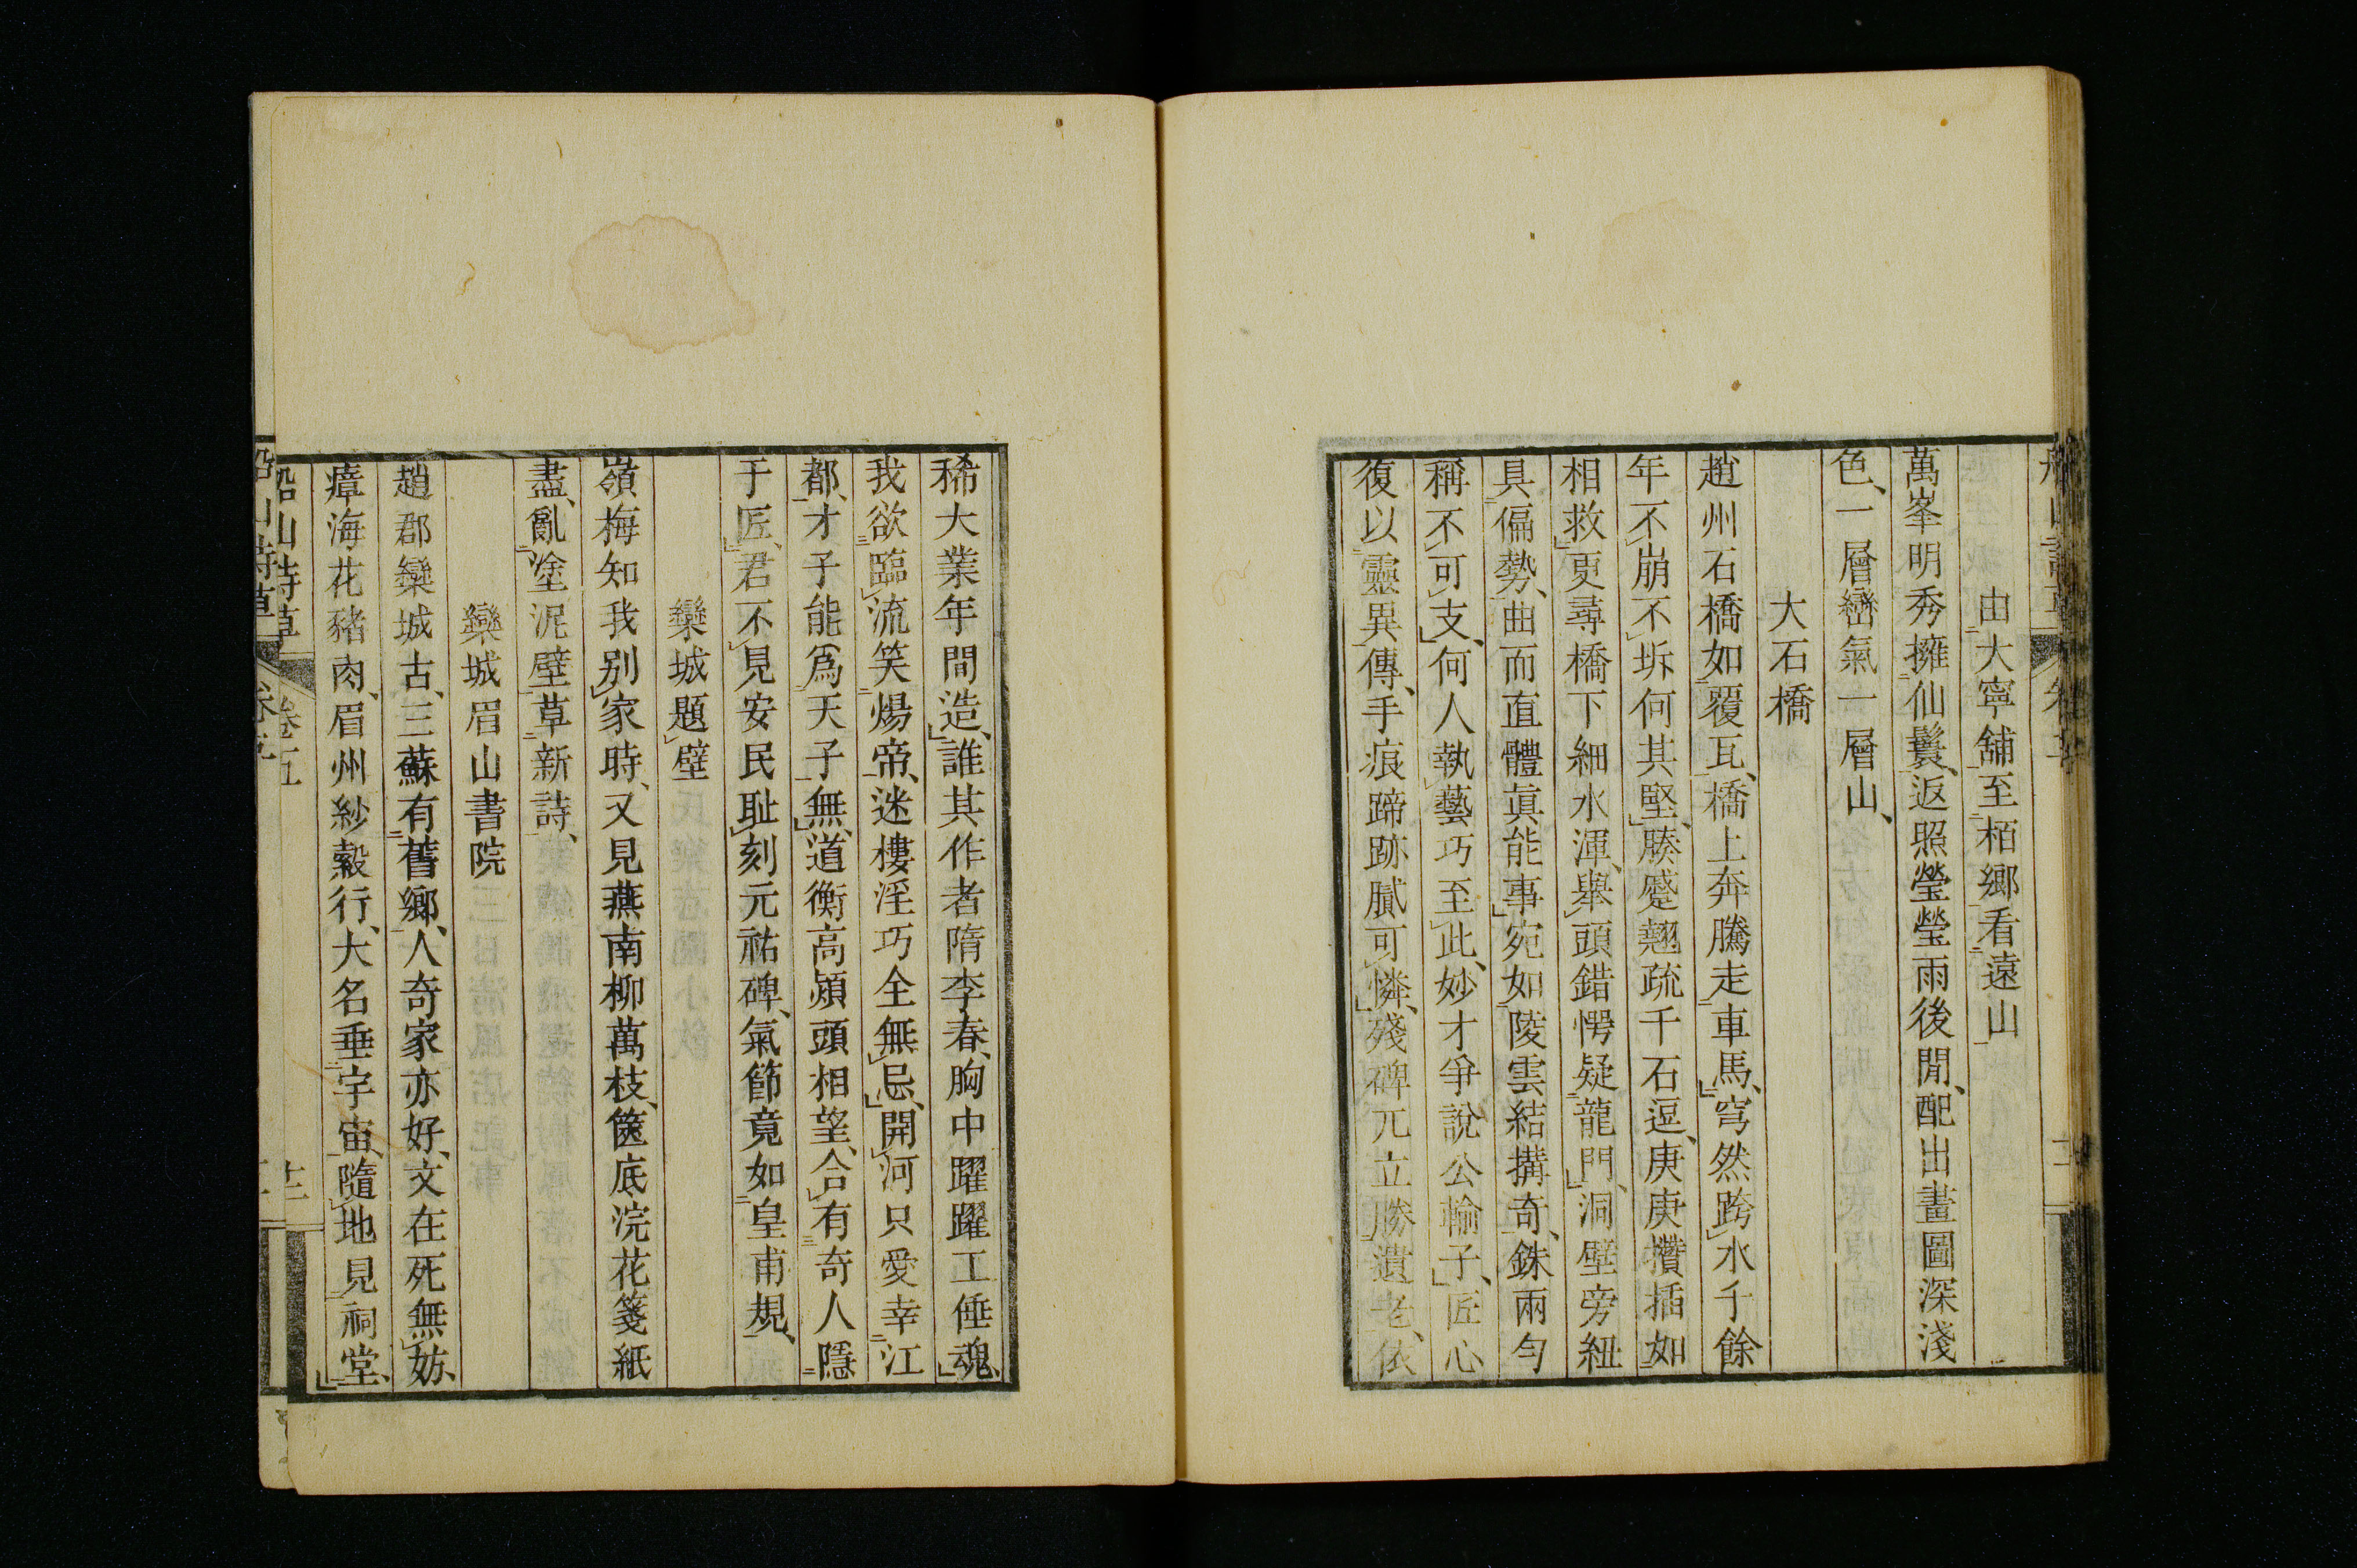 由大寧舖至栢郷看遠山
萬峯明秀擁仙鬟、返照瑩瑩雨後閒、配出畫圖深淺
色、一層巒氣一層山、
大石橋
趙州石橋如覆瓦、橋上奔騰走車馬、穹然跨水千餘
年不崩不坼何其堅、腠蹙翹疏千石逗、庚庚攢插如
相救更尋橋下細水渾、舉頭錯愕疑龍門、洞壁旁紐
具偏勢、曲而直體眞能事宛如陵雲結搆奇、銖兩勻
稱不可支、何人執藝巧至此、妙才爭說公輸子、匠心
復以靈異傳、手痕蹄跡膩可憐、殘碑兀立勝遺老、依
稀大業年間造、誰其作者隋李春、胸中躍躍工倕魂、
我欲臨流笑煬帝、迷樓淫巧全無忌、開河只愛幸江
都、才子能爲天子無、道衡高熲頭相望、合有奇人隱
于匠、君不見安民耻刻元祐碑、氣節竟如皇甫規、
欒城題壁
嶺梅知我别家時、又見燕南柳萬枝、篋底浣花箋紙
盡、亂塗泥壁草新詩、
欒城眉山書院
趙郡欒城古、三蘇有舊鄉、人奇家亦好、文在死無妨、
瘴海花豬肉、眉州紗縠行、大名垂宇宙、隨地見祠堂、
船山詩草
卷五